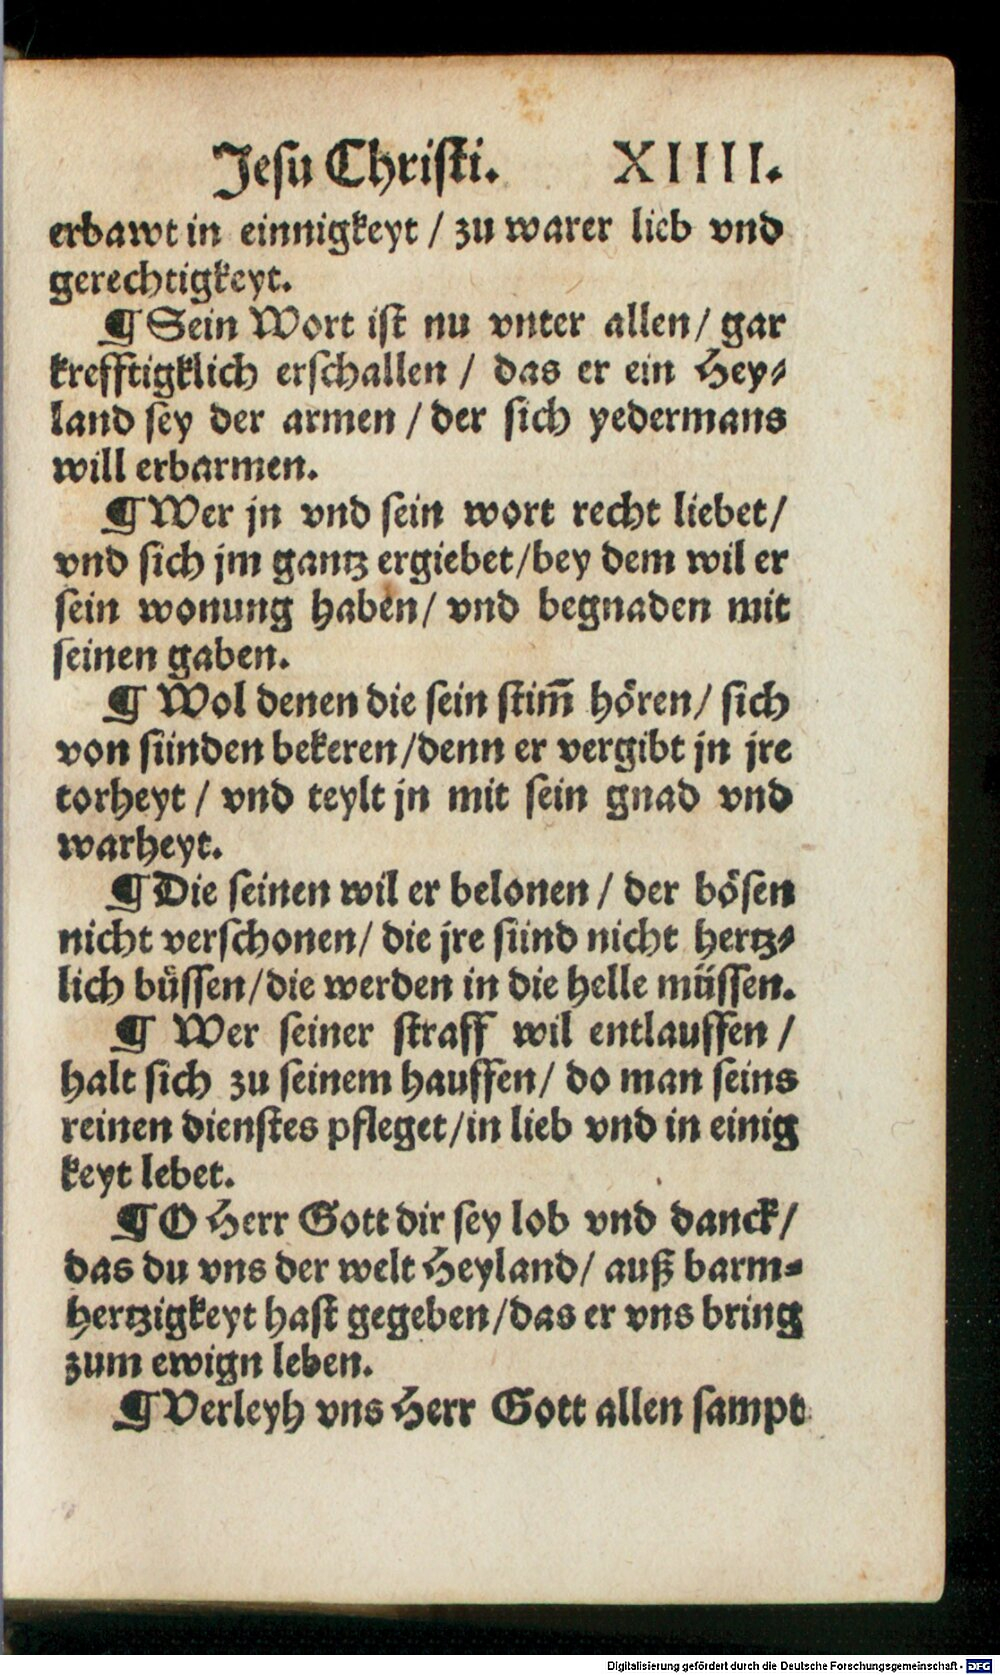 Jesu Christi. XIIII.
erbawt in einnigkeyt / zu warer lieb vnd
gerechtigkeyt.
¶ Sein Wort ist nu vnter allen / gar
krefftigklich erschallen / das er ein Hey⸗
land sey der armen / der sich yedermans
will erbarmen.
¶ Wer jn vnd sein wort recht liebet /
vnd sich jm gantz ergiebet / bey dem wil er
sein wonung haben / vnd begnaden mit
seinen gaben.
¶ Wol denen die sein stim̄ hören / sich
von sünden bekeren / denn er vergibt jn jre
torheyt / vnd teylt jn mit sein gnad vnd
warheyt.
¶ Die seinen wil er belonen / der bösen
nicht verschonen / die jre sünd nicht hertz⸗
lich büssen / die werden in die helle müssen.
¶ Wer seiner straff wil entlauffen /
halt sich zu seinem hauffen / do man seins
reinen dienstes pfleget / in lieb vnd in einig
keyt lebet.
¶ O Herr Gott dir sey lob vnd danck /
das du vns der welt Heyland / auß barm⸗
hertzigkeyt hast gegeben / das er vns bring
zum ewign leben.
¶ Verleyh vns Herr Gott allen sampt
Digitalisierung gefördert durch die Deutsche Forschungsgemeinschaft - DFG